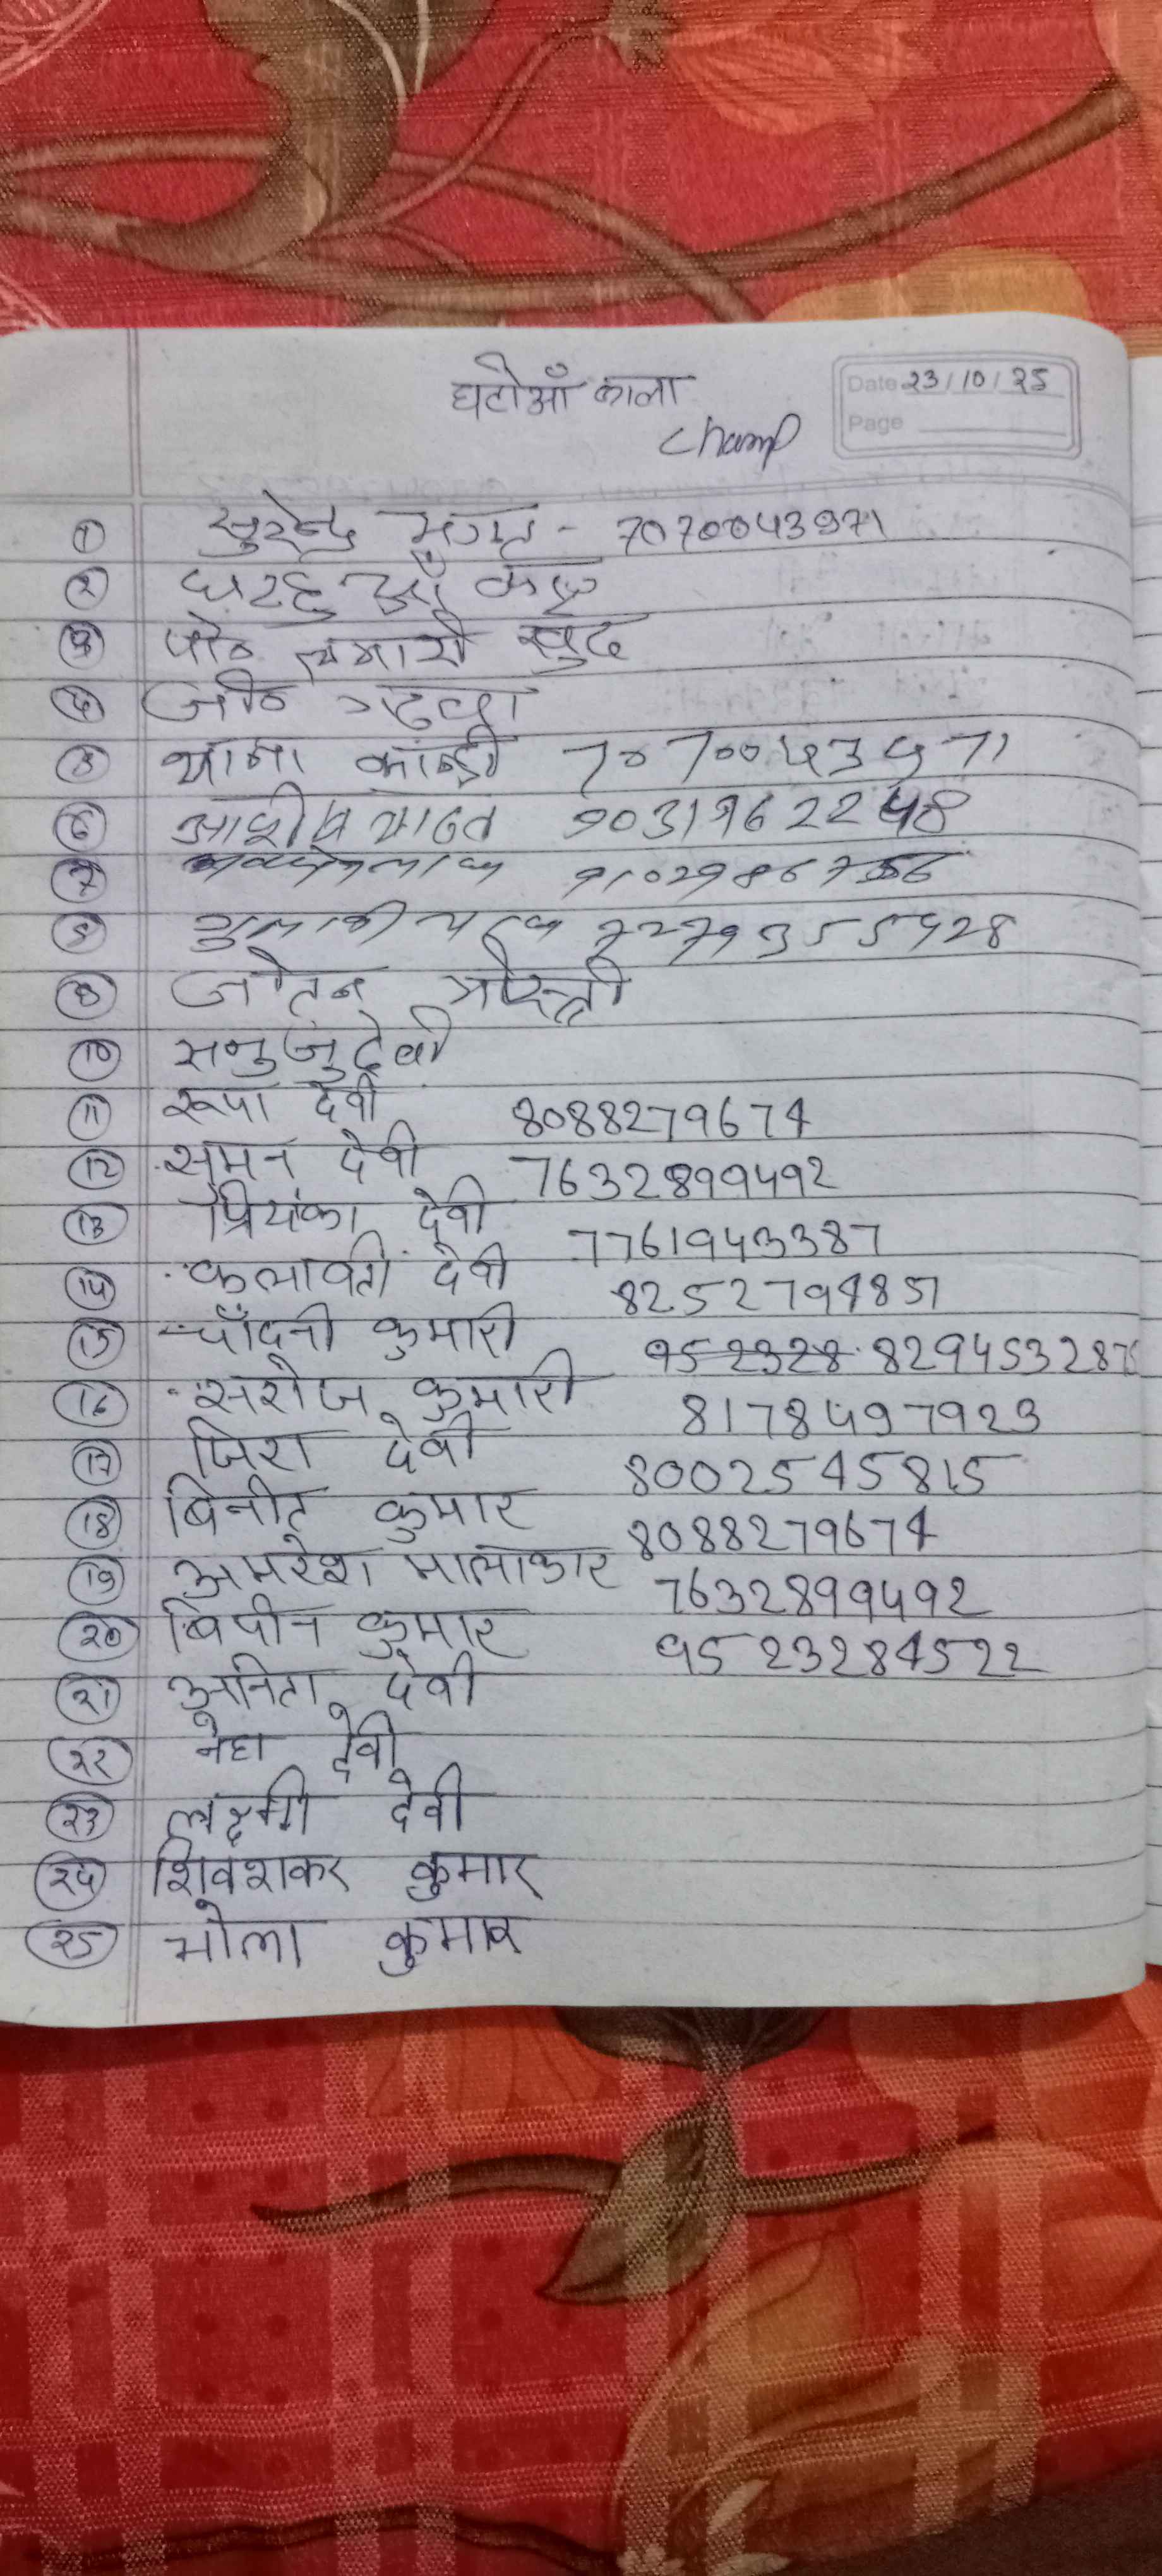 घटोआँ काला
Champ
Date 23/10/25
Page
1 सुरेन्द्र भगत - 7070043971
2 घरहुआँ कला
3 पो० लगारी खुर्द
4 जी० गढवा
5 थाना कान्डी 7070043971
6 आशीष यादव 9031962248
7 9102986756
8 7279355428
9 जोतन
10 देवी
11 रूपा देवी 8088279674
12 सुमन देवी 7632899492
13 प्रियंका देवी 7761943387
14 कलावती देवी 8252794851
15 चाँदनी कुमारी 952328 829453287
16 सरोज कुमारी 8178497923
17 जिरा देवी 8002545815
18 बिनीत कुमार 8088279674
19 अमरेश मालाकार 7632899492
20 बिपीन कुमार 9523284522
21 अनिता देवी
22 नेहा देवी
23 लक्ष्मी देवी
24 शिवशंकर कुमार
25 भोला कुमार